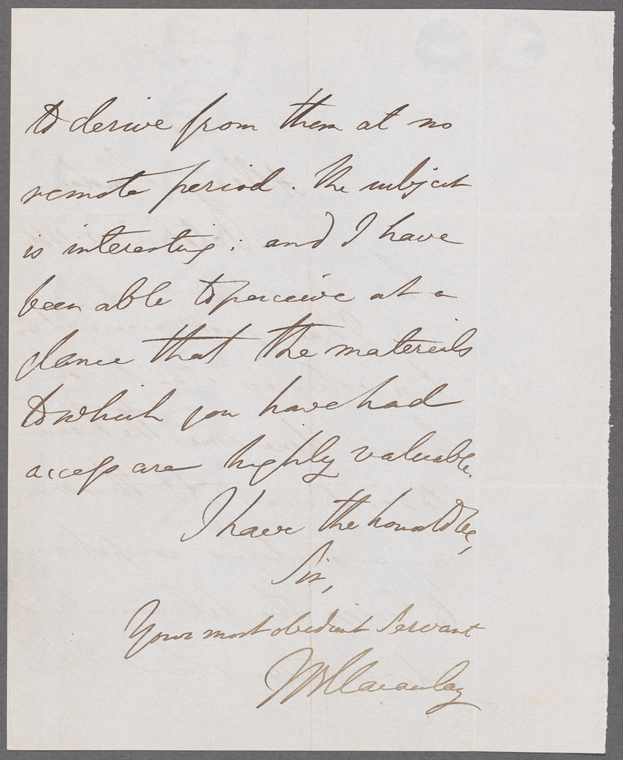 to derive from them at no
remote period. The subject
is interesting; and I have
been able to perceive at a
glance that the materials
to which you have had
access are highly valuable.
I have the honor to be,
Sir,
Your most obedient Servant
TBMacaulay